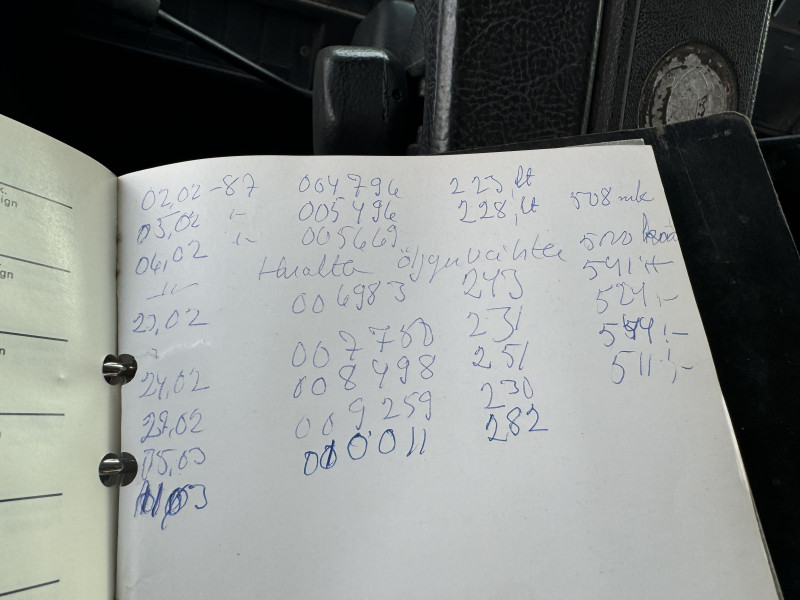 02,02-87 004796 223 lt 508 mk
05,02 -"- 005496 228 lt 520
06,02 -"- 005669
-"- Huolto öljynvaihto 541
23,02 006983 243 524,-
007780 231 594,-
24,02 008498 251 511,-
29,02 009259 230
05,03 010011 282
03